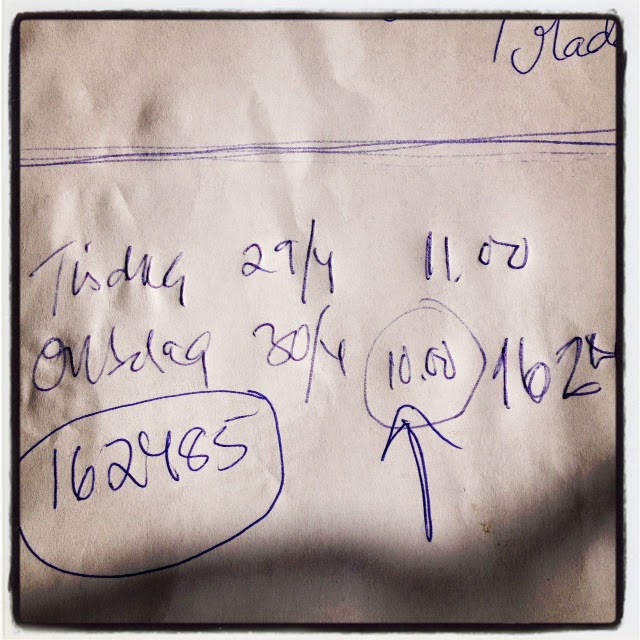 Tisdag 29/4 11.00
Onsdag 30/4 10.00 162
162485